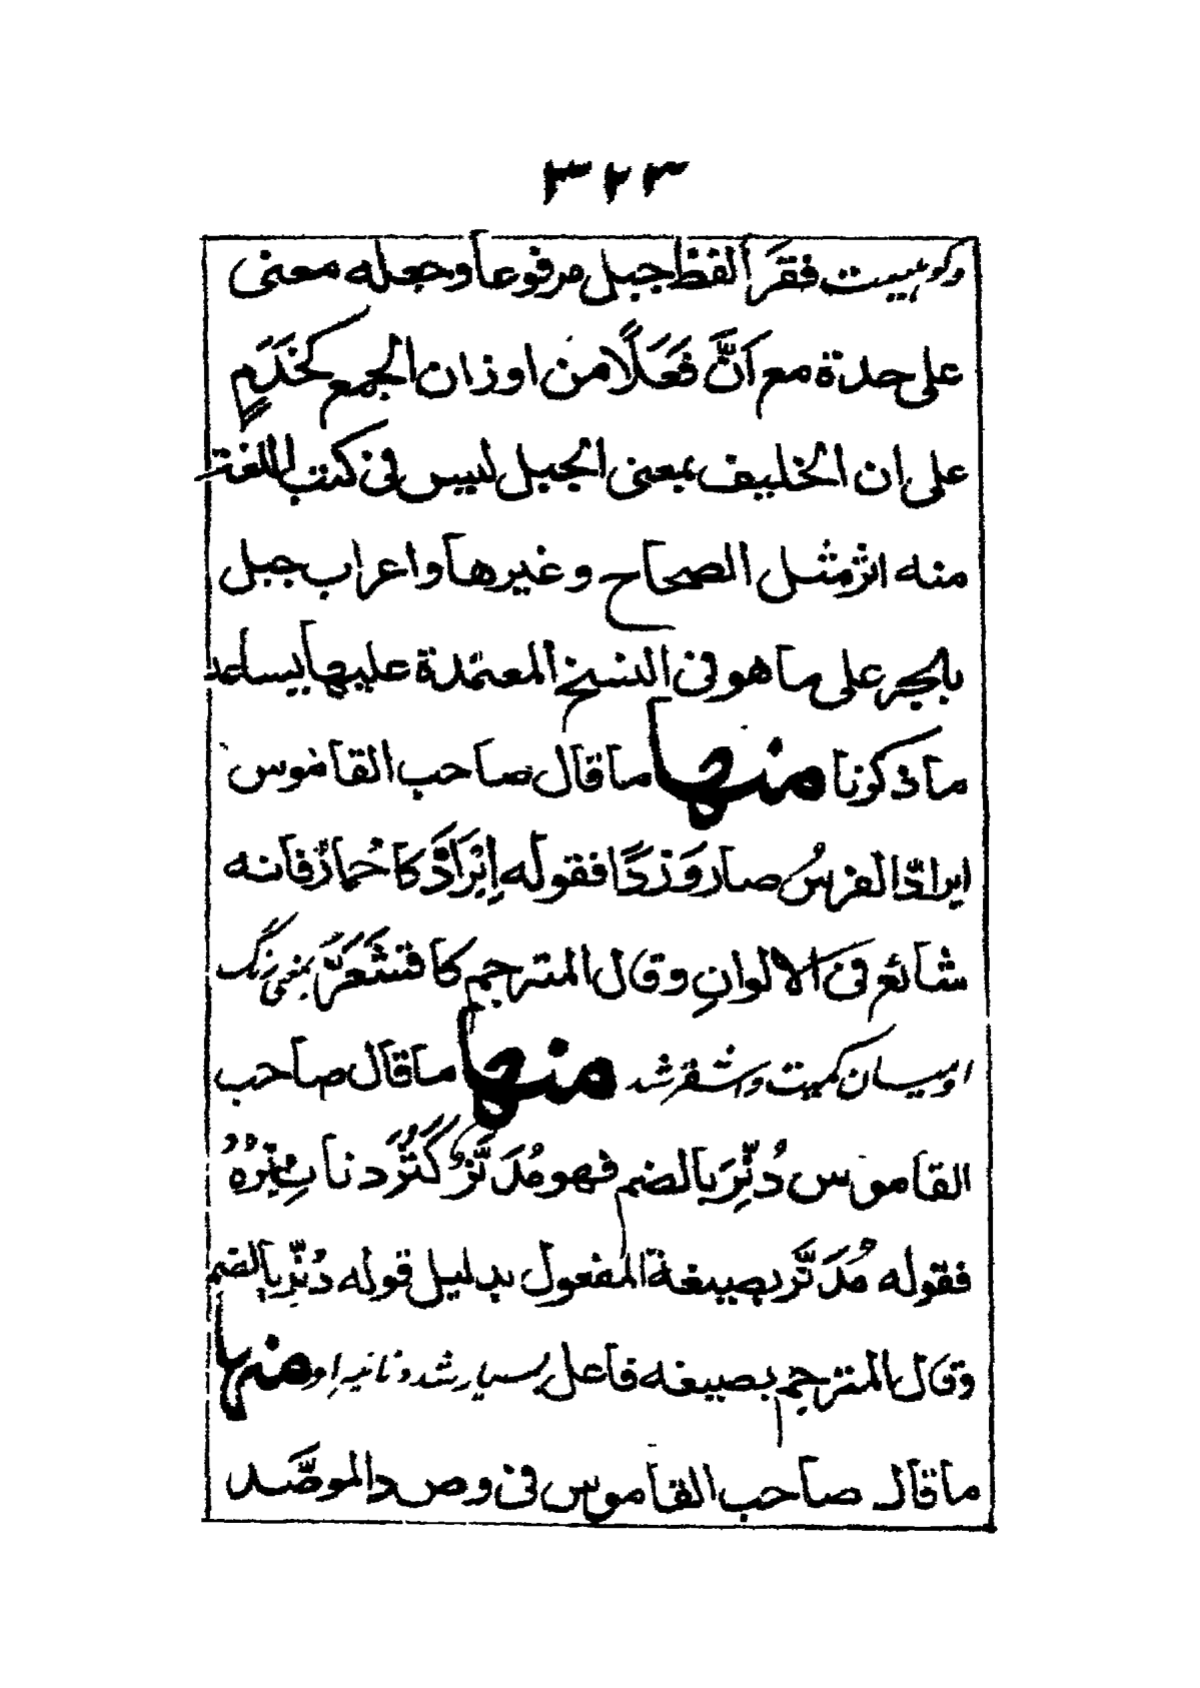 ٣٢٣
وكوهيست فقرأ لفظ جبل مرفوعا وجعله معنى
على حدة مع اَنَّ فَعَلًا من اوزان الجمع كخَدَمٍ
على ان الخليف بمعنى الجبل ليس فى كتب اللغة
منه اثر مثل الصحاح وغيرها واعراب جبل
بالجر على ما هو فى النسخ المعتمدة عليها يساعد
ما ذكرنا منها ما قال صاحب القاموس
ايرادّ الفرسُ صار وَرْدًا فقوله اِيْرَادَّ كاحمارّ فانه
شائع فى الالوانِ وقال المترجم كاقشَعَرَّ بمعنى رنگ
او ميان كميت واشقر شد منها ما قال صاحب
القاموس دُنِّرَ بالضم فهو مُدَنَّرٌ كَثُرَ دنانِيْرُهُ
فقوله مُدَنَّر بصيغة المفعول بدليل قوله دُنِّر بالضم
وقال المترجم بصيغه فاعل بسيار شد دنانير او منها
ما قال صاحب القاموس فى وص د الموصَّد